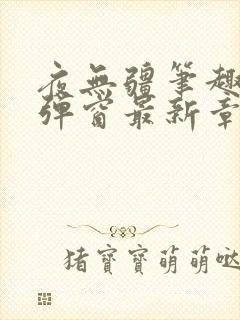 夜無疆筆趣
彈窗最新章
猪寶寶萌萌哒